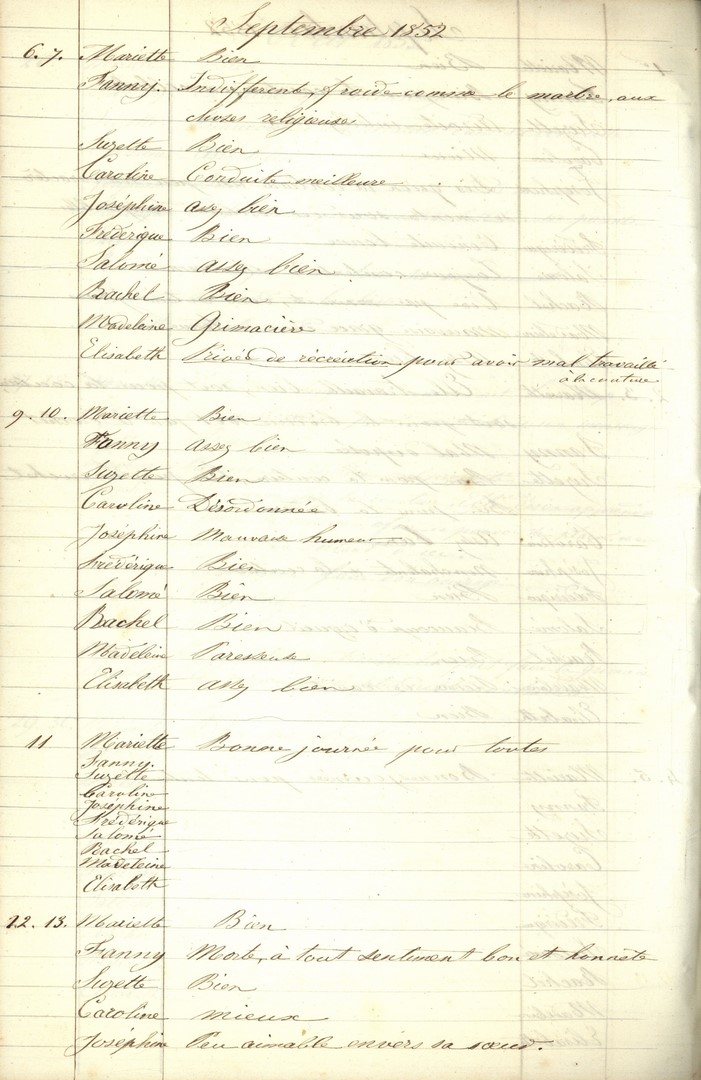 Septembre 1852
6. 7. Mariette Bien
Fanny. Indifférente, froide comme le marbre, aux
choses religieuses
Suzette Bien
Caroline Conduite meilleure
Joséphine assez bien
Frédérique Bien
Salomé assez bien
Rachel Bien
Madeleine Grimacière
Elisabeth Privée de récréation pour avoir mal travaillé
à la couture
9. 10. Mariette Bien
Fanny assez bien
Suzette Bien
Caroline Désordonnée
Joséphine Mauvaise humeur
Frédérique Bien
Salomé Bien
Rachel Bien
Madélein Paresseuse
Elisabeth assez bien
11 Mariette Bonne journée pour toutes
Fanny.
Suzette
Caroline
Joséphine
Frédérique
Salomé
Rachel
Madeleine
Elisabeth
12. 13. Mariette Bien
Fanny Morte, à tout sentiment bon et honnête
Suzette Bien
Caroline mieux
Joséphine Peu aimable envers sa sœur.